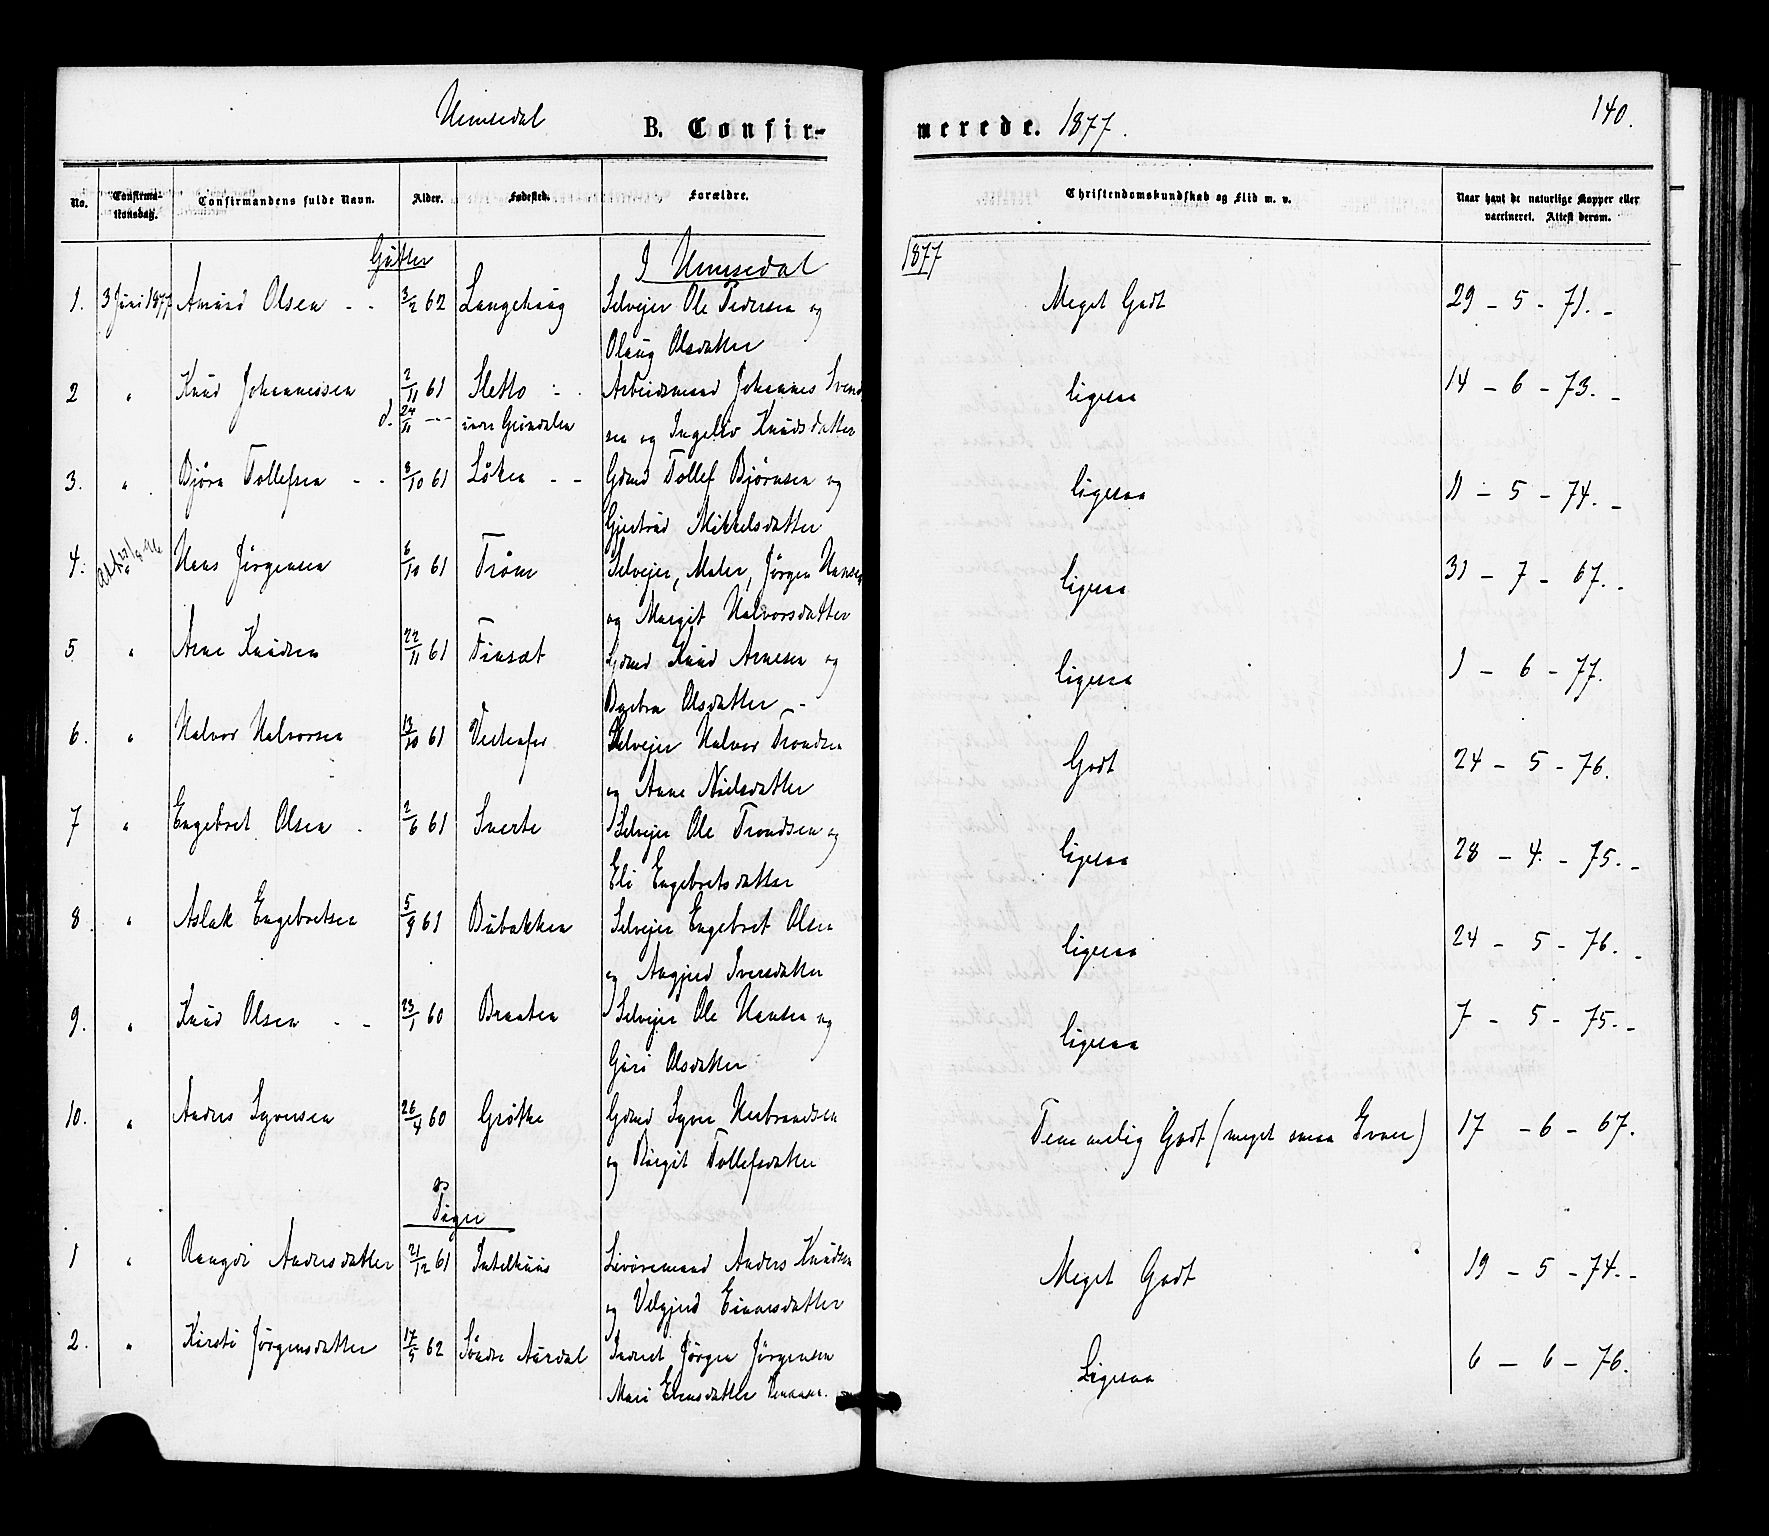 Hemsedal
B. Confirmerede. 1877.
140.
No.
Confirmationsdag.
Confirmandens fulde Navn.
Alder.
Fødested.
Forældre.
Christendomskundskab og Flid m. v.
Naar havt de naturlige Kopper eller vaccineret. Attest derom.
Gutter
I Hemsedal
1877
1. 3 Juni 1877 Amund Olsen - - 3/2 62 Langehaug Selvejer Ole Pedersen og Meget Godt 29 - 5 - 71. -
Olaug Olsdatter
2 " Knud Johannessen 2/11 61 Sletto - . Arbeidsmand Johannes Svend ligesaa 14 - 6 - 73. -
d. 24/11 --- Grøndalen sen og Ingebor Knudsdatter
3. " Bjørn Tollefsen - - 8/10 61 Løken - - Gdmd Tollef Bjørnsen og ligesaa 11 - 5 - 74. -
Gjertrud Mikkelsdatter
4. Hans Jørgensen 6/10 61 Trøim Selvejer, Maler, Jørgen Hansen ligesaa 31 - 7 - 67. -
og Margit Halvorsdatter
5 " Arne Knudsen 22/11 61 Finset Gdmd Knud Arnesen og ligesaa 1 - 6 - 77.
Barbra Olsdatter -
6. " Halvor Halvorsen 13/10 61 Selvejer Halvor Trondsen Godt 24 - 5 - 76.
og Anne Nielsdatter
7 " Engebret Olsen 2/6 61 Snerte Selvejer Ole Trondsen og ligesaa 28 - 4. - 75. -
Eli Engebretsdatter
8 " Aslak Engebretsen 5/9 61 Bubakken Selvejer Engebret Olsen ligesaa 24 - 5 - 76. -
og Angjerd Iversdatter
9. " Knud Olsen - - 23/1 60 Braaten Selvejer Ole Hansen og ligesaa 7 - 5 - 75. -
Guri Olsdatter
10. " Anders Syversen 26/4 60 Grøthe Gdmd Syver Herbrandsen Temmelig Godt (meget smaa Evner) 17 - 6 - 67.
og Birgit Tollefsdatter
og
Piger
1 " Rangdi Andersdatter 21/12 61 Intelhuus Livøremand Anders Knudsen Meget Godt 19 - 5 - 74. -
og Velgjerd Einarsdatter
2. " Kirsti Jørgensdatter 17/5 62 Søndre Aurdal Inderst Jørgen Jørgensen Ligesaa 6 - 6 - 76.
Mari